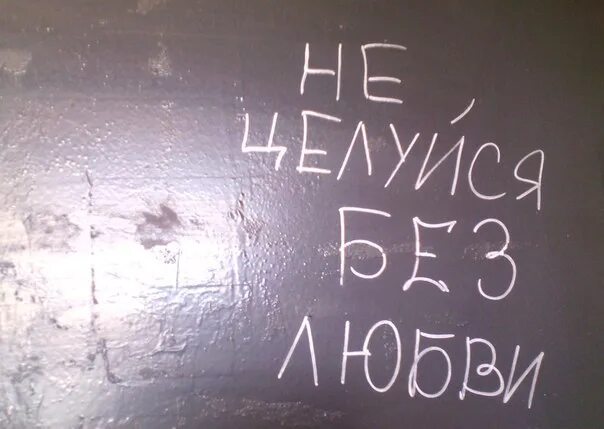 НЕ
ЦЕЛУЙСЯ
БЕЗ
ЛЮБВИ